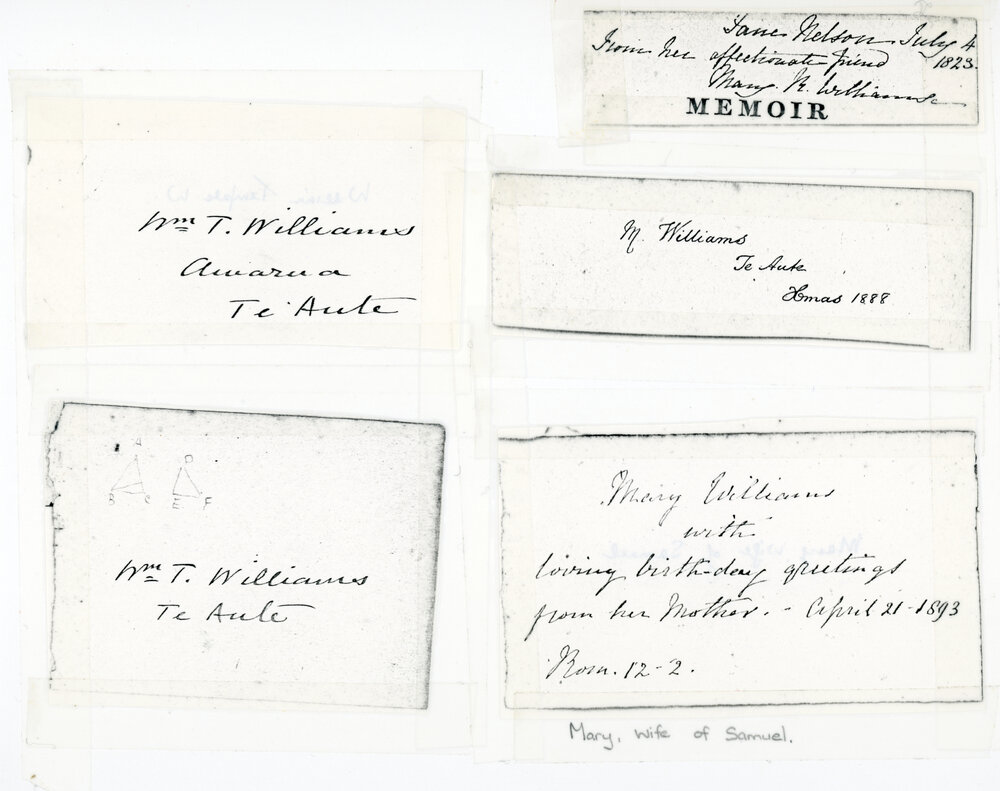 Jane Nelson July 4
1823.
From her affectionate friend
Mary R. Williams
MEMOIR
Wm T. Williams
Awarua
Te Aute
M. Williams
Te Aute
Xmas 1888
A
B C
D
E F
Wm T. Williams
Te Aute
Mary Williams
with
loving birth-day greetings
from her Mother. - April 21 - 1893
Rom. 12-2.
Mary, wife of Samuel.